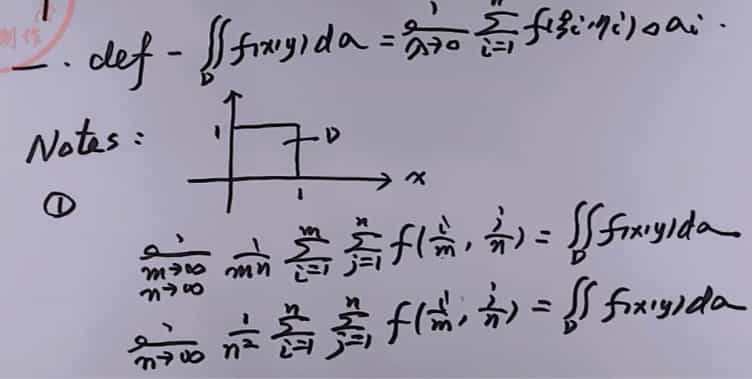 制作
一. def - ∬_D f(x,y)da = lim_{λ→0} Σ_{i=1}^{n} f(ξi,ηi)△ai.
Notes:
1 D
x
1
①
lim_{m→∞ n→∞} 1/mn Σ_{i=1}^{m} Σ_{j=1}^{n} f(i/m, j/n) = ∬_D f(x,y)da
lim_{n→∞} 1/n² Σ_{i=1}^{n} Σ_{j=1}^{n} f(i/m, j/n) = ∬_D f(x,y)da